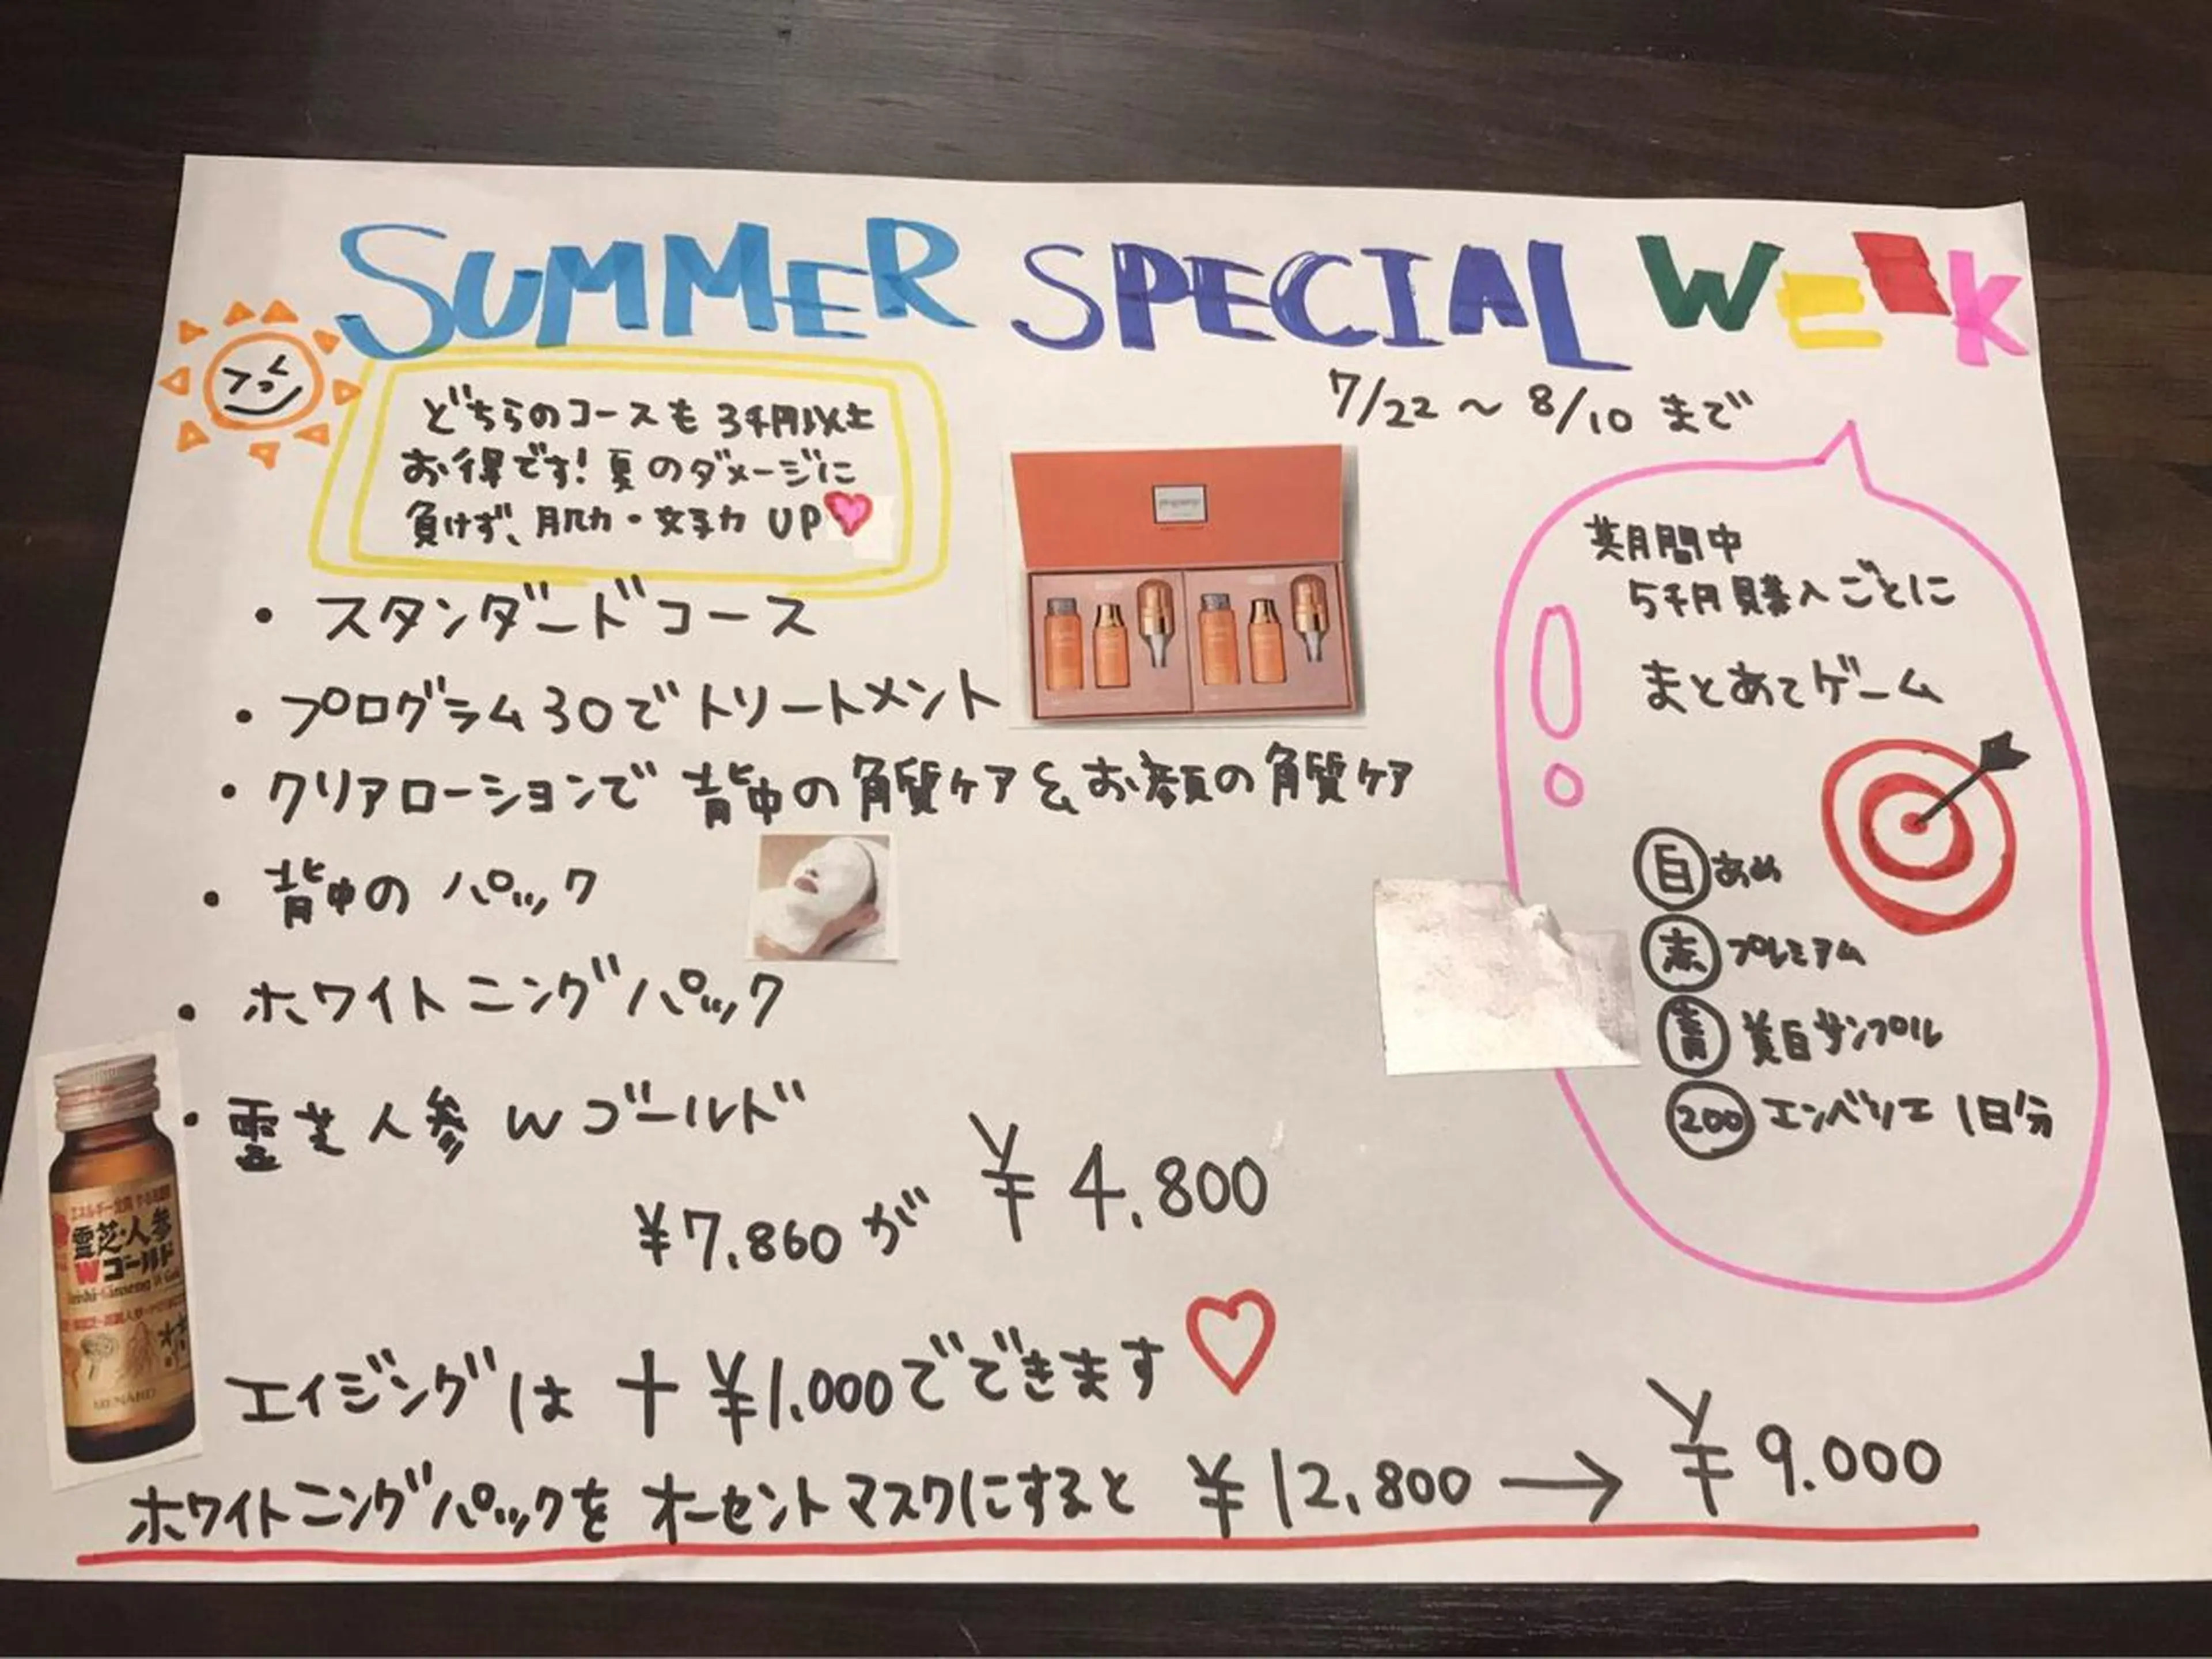 SUMMER SPECIAL WEEK
7/22 ～ 8/10 まで
どちらのコースも 3千円以上
お得です! 夏のダメージに
負けず、肌力・女子力 UP
・スタンダードコース
・プログラム30でトリートメント
・クリアローションで 背中の角質ケア & お顔の角質ケア
・背中の パック
・ホワイトニングパック
・霊芝人参 W ゴールド
¥7,860 が ¥4,800
エイジングは + ¥1,000でできます
ホワイトニングパックを オーセントマスクにすると ¥12,800 → ¥9.000
期間中
5千円購入ごとに
まとあてゲーム
白 あめ
赤 プレミアム
青 美白サンプル
200 エンベリエ 1日分
霊芝・人参
Wゴールド
MENARD